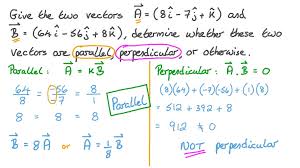 Give the two vectors A⃗ = (8î - 7ĵ + k̂) and
B⃗ = (64î - 56ĵ + 8k̂), determine whether these two
vectors are parallel, perpendicular, or otherwise.
Parallel: A⃗ = KB⃗
64/8 = -56/-7 = 8/1
8 = 8 = 8
Parallel
B⃗ = 8A⃗ or A⃗ = 1/8 B⃗
Perpendicular: A⃗ . B⃗ = 0
(8)(64) + (-7)(-56) + (1)(8)
= 512 + 392 + 8
= 912 ≠ 0
NOT perpendicular